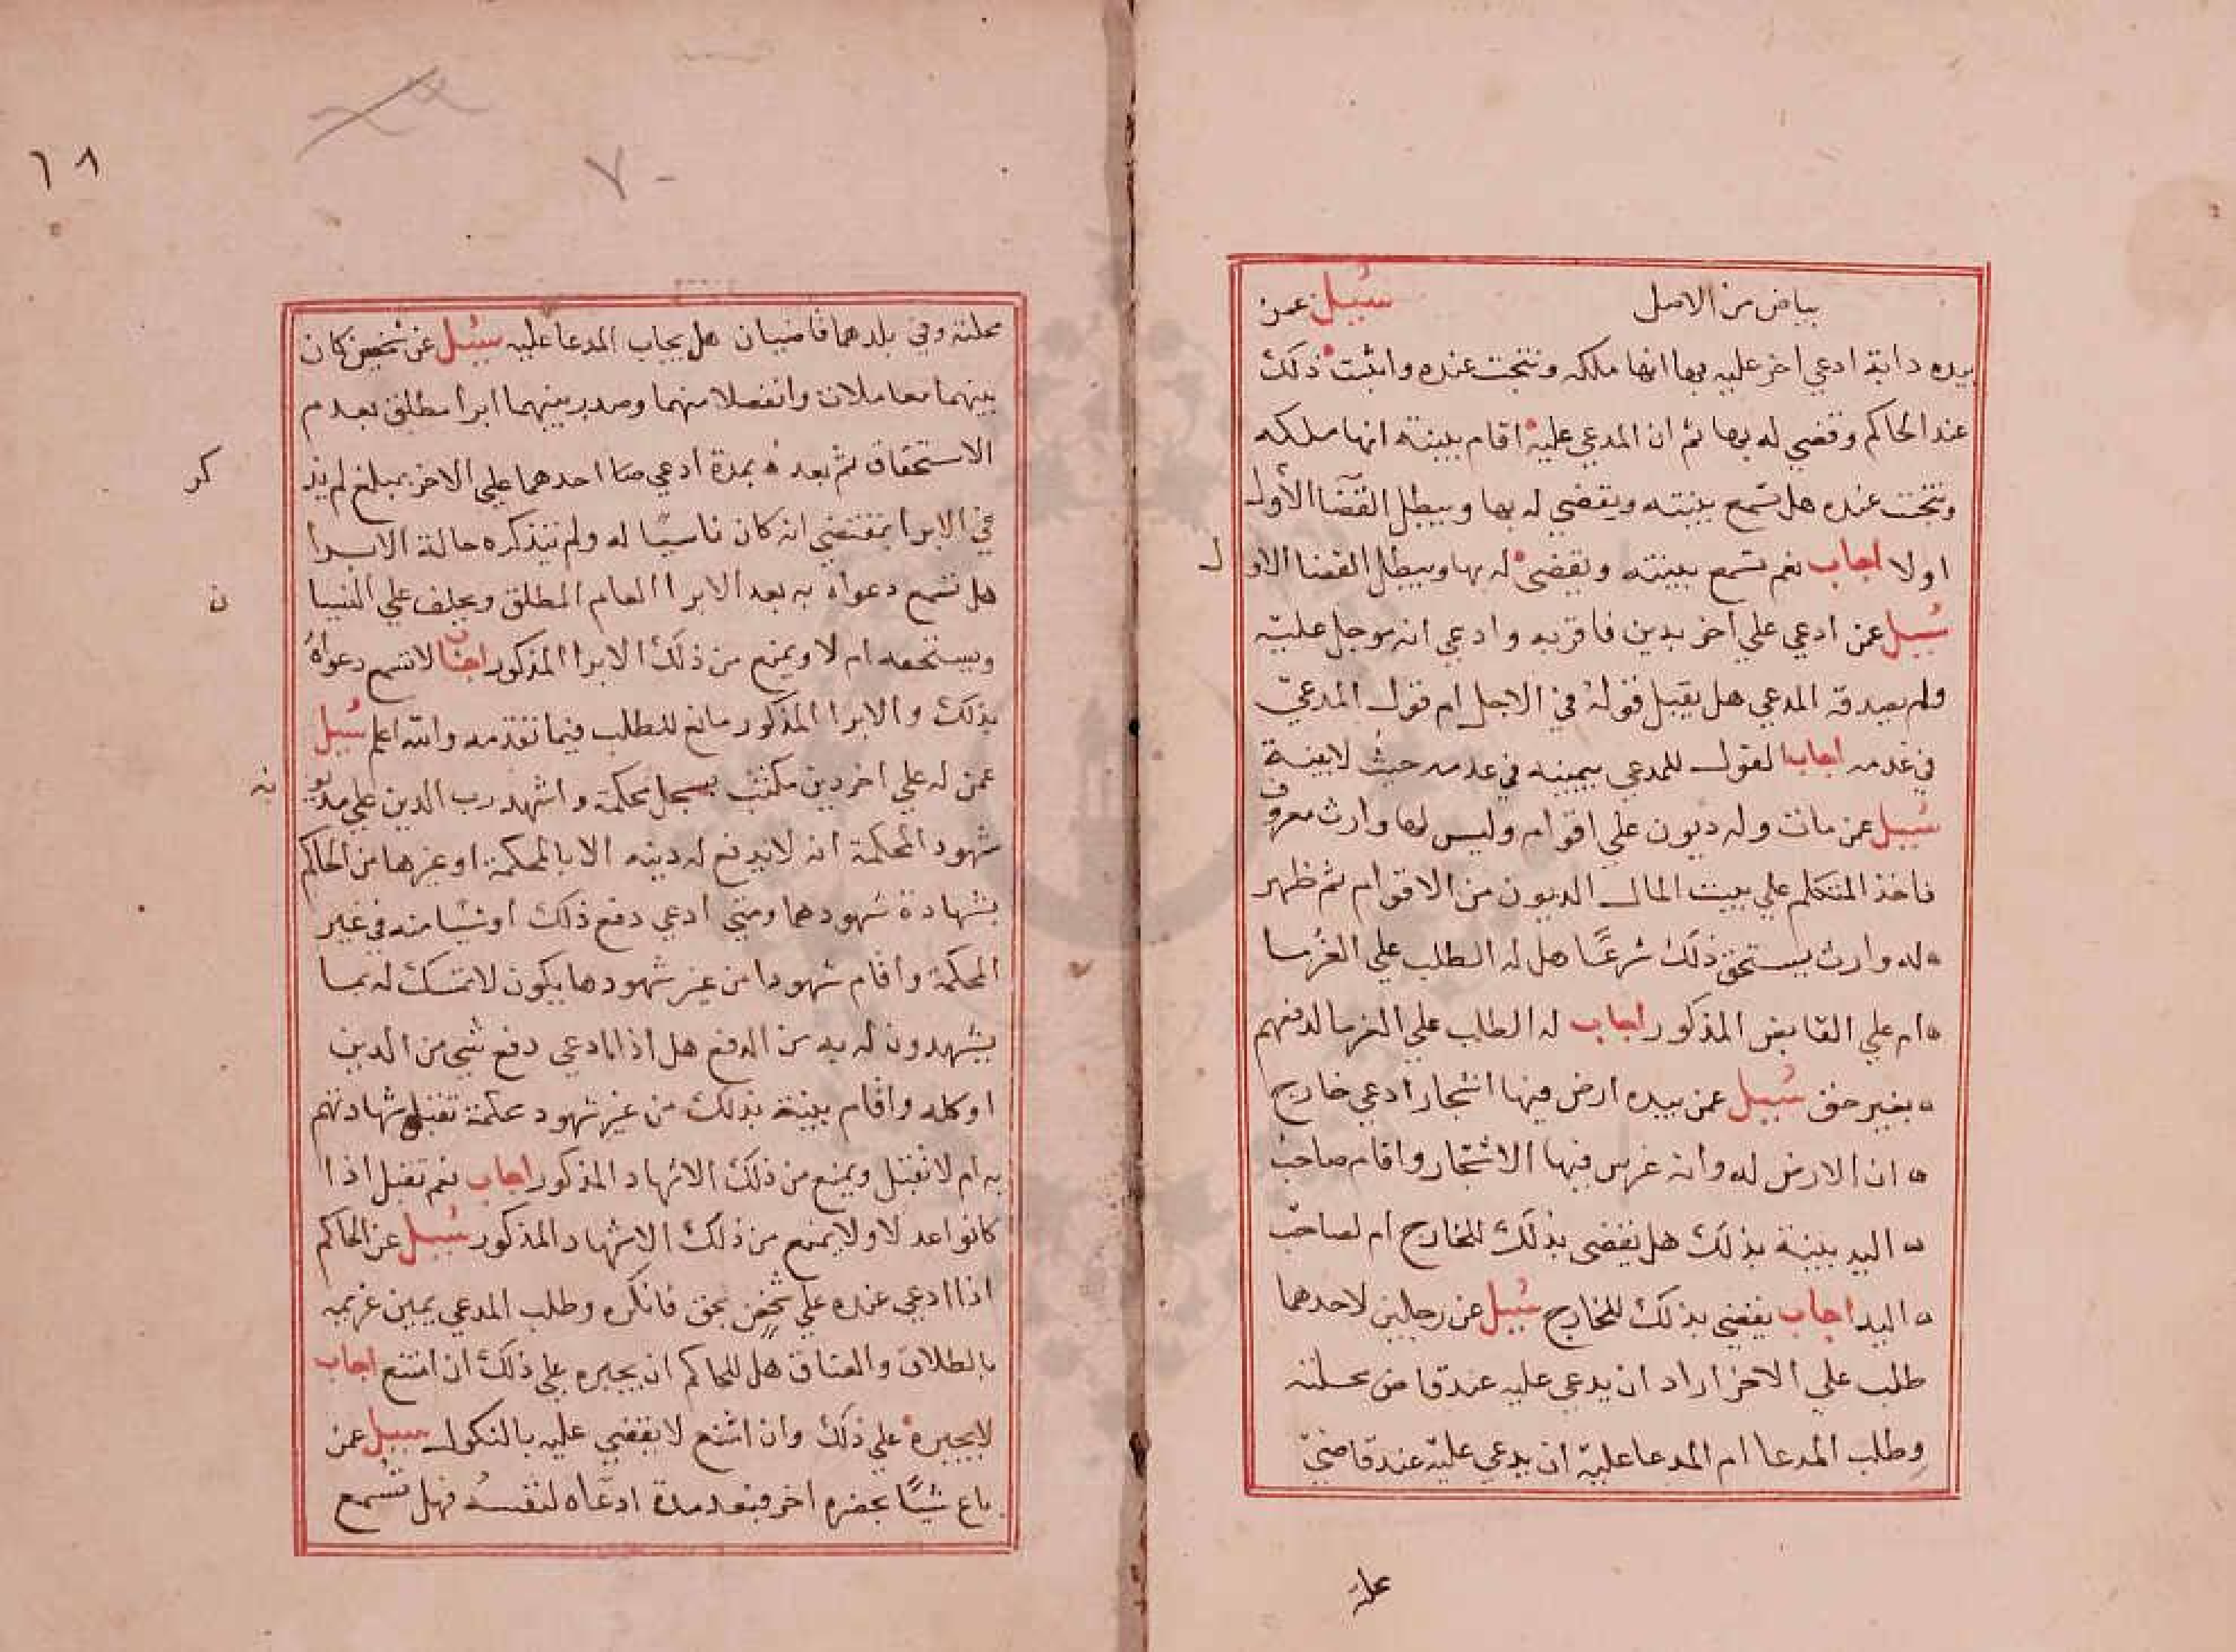 بياض من الاصل سُيل عمن
بيده دابة ادعي اخر عليه بها انها ملكه ونتجت عنده واثبت ذلك
عند الحاكم وقضي له بها ثم ان المدعي عليه اقام بينة انها ملكه
ونتجت عنده هل تسمع بينته ويقضي له بها ويبطل القضا الأول
اولا اجاب نعم تسمع بينته ويقضي له بها ويبطل القضا الاول
سُيل عمن ادعي علي اخر بدين فاقر به وادعي انه موجل عليه
ولم يصدقه المدعي هل يقبل قوله في الاجل ام قول المدعي
في عدمه اجاب القول للمدعي بيمينه في عدمه حيث لا بينة
سُيل عمن مات وله ديون علي اقوام وليس لها وارث معروف
فاخذ المتكلم علي بيت المال الديون من الاقوام ثم ظهر
له وارث يستحق ذلك شرعًا هل له الطلب علي الغُرما
ام علي القابض المذكور اجاب له الطلب علي الغرما لدفعهم
بغير حق سُيل عمن بيده ارض فيها اشجار ادعي خارج
ان الارض له وانه غرس فيها الاشجار واقام صاحب
اليد بينة بذلك هل يقضى بذلك للخارج ام لصاحب
اليد اجاب يقضي بذلك للخارج سُيل عن رجلين لاحدهما
طلب علي الاخر اراد ان يدعي عليه عند قاض محلته
وطلب المدعا ام المدعا عليه ان يدعي عليه عند قاضي
محلته
١٨
٧٠
محلته وفي بلدهما قاضيان هل يجاب المدعا عليه سُيل عن شخص كان
بينهما معاملات وانفصلا منهما وصدر بينهما ابرا مطلق بعدم
الاستحقاق ثم بعده بمدة ادعي احدهما علي الاخر بمبلغ لم يذكر
في الابرا بمقتضي انه كان ناسيًا له ولم يتذكره حالة الابرا
هل تسمع دعواه به بعد الابرا العام المطلق ويحلف علي النسيان
ويستحقه ام لا ويمنع من ذلك الابرا المذكور اجاب لا تسمع دعواهُ
بذلك والابرا المذكور مانع للطلب فيما تقدمه والله اعلم سُيل
عمن له علي اخر دين مكتتب بسجل محكمة واشهد رب الدين علي مديونه
شهود المحكمة انه لا يدفع له دينه الا بالمحكمة او غيرها من الحاكم
بشهادة شهودهما ومتي ادعي دفع ذلك او شيا منه في غير
المحكمة واقام شهودا من غير شهودها يكون لا تمسك له بما
يشهدون له به من الدفع هل اذا ادعي دفع شي من الدين
او كله واقام بينة بذلك من غير شهود محكمة تقبل شهادتهم
به ام لا تقبل ويمنع من ذلك الاشهاد المذكور اجاب نعم تقبل اذا
كانوا عدلا ولا يمنع من ذلك الاشهاد المذكور سُيل عن الحاكم
اذا ادعي عنده علي شخص بحق فانكره وطلب المدعي يمين غريمه
بالطلاق والعتاق هل للحاكم ان يجبره علي ذلك ان امتنع اجاب
لا يجبره علي ذلك وان امتنع لا يقضي عليه بالنكول سيل عمن
باع شيًا بحضره اخر فبعد مدة ادعاه لنفسه فهل تسمع